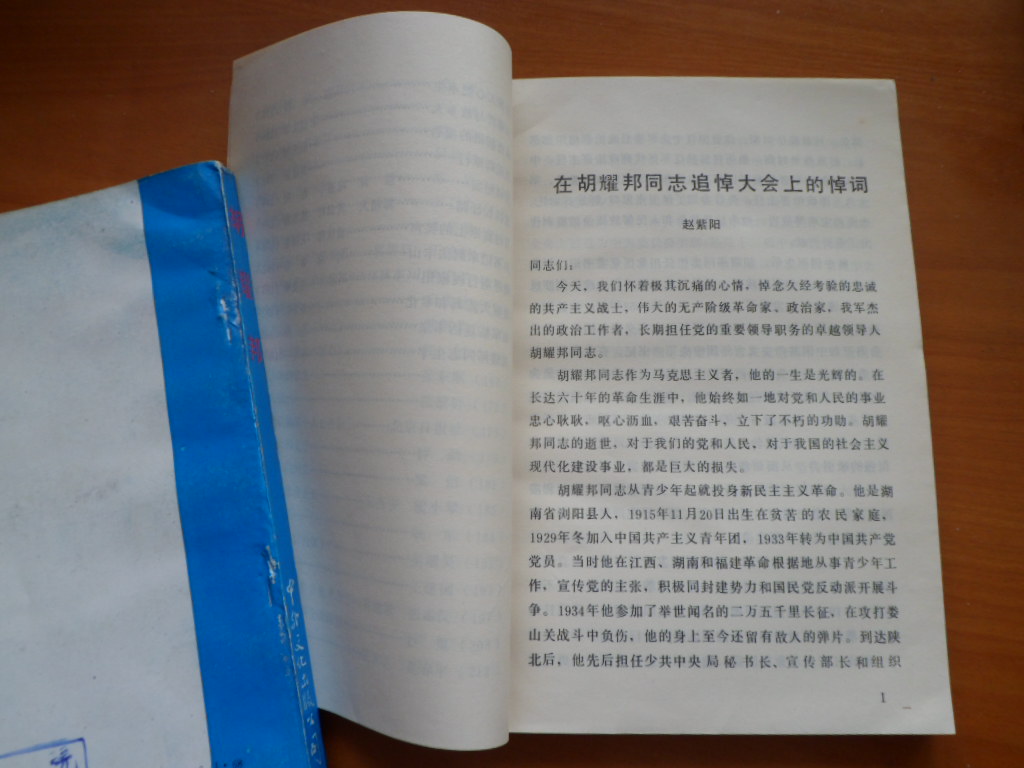 在胡耀邦同志追悼大会上的悼词
赵紫阳
同志们：
今天、我们怀着极其沉痛的心情，悼念久经考验的忠诚
的共产主义战士，伟大的无产阶级革命家、政治家，我军杰
出的政治工作者，长期担任党的重要领导职务的卓越领导人
胡耀邦同志。
胡耀邦同志作为马克思主义者，他的一生是光辉的。在
长达六十年的革命生涯中，他始终如一地对党和人民的事业
忠心耿耿，呕心沥血，艰苦奋斗，立下了不朽的功勋。胡耀
邦同志的逝世，对于我们的党和人民、对于我国的社会主义
现代化建设事业，都是巨大的损失。
胡耀邦同志从青少年起就投身新民主主义革命。他是湖
南省浏阳县人，1915年11月20日出生在贫苦的农民家庭，
1929年冬加入中国共产主义青年团，1933年转为中国共产党
党员。当时他在江西、湖南和福建革命根据地从事青少年工
作，宣传党的主张，积极同封建势力和国民党反动派开展斗
争。1934年他参加了举世闻名的二万五千里长征，在攻打娄
山关战斗中负伤，他的身上至今还留有敌人的弹片。到达陕
北后，他先后担任少共中央局秘书长、宣传部长和组织
1